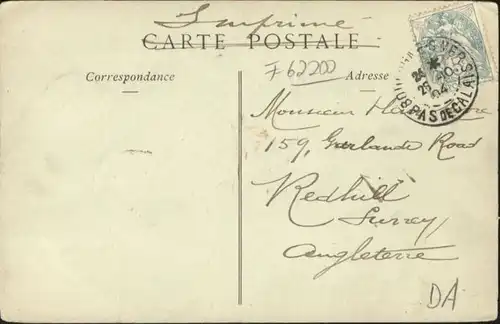 Imprimé
CARTE POSTALE
Correspondance
Adresse
F 62200
PAS DE CALAIS
Monsieur
159, Garlande Road
Redhill
Surrey
Angleterre
DA